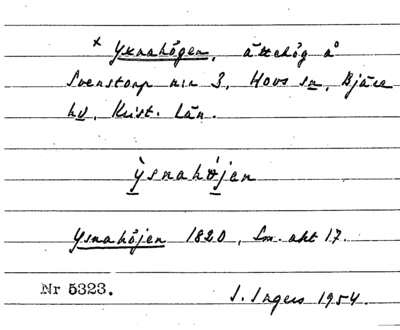 × Yxnahögen, ättehög å
Svenstorp nr 3, Hovs sn, Bjäre
hd, Krist. län.
ỳsnahøjen
Ysnahöjen 1820, Lm. akt 17.
Nr 5323.
I. Ingers 1954.